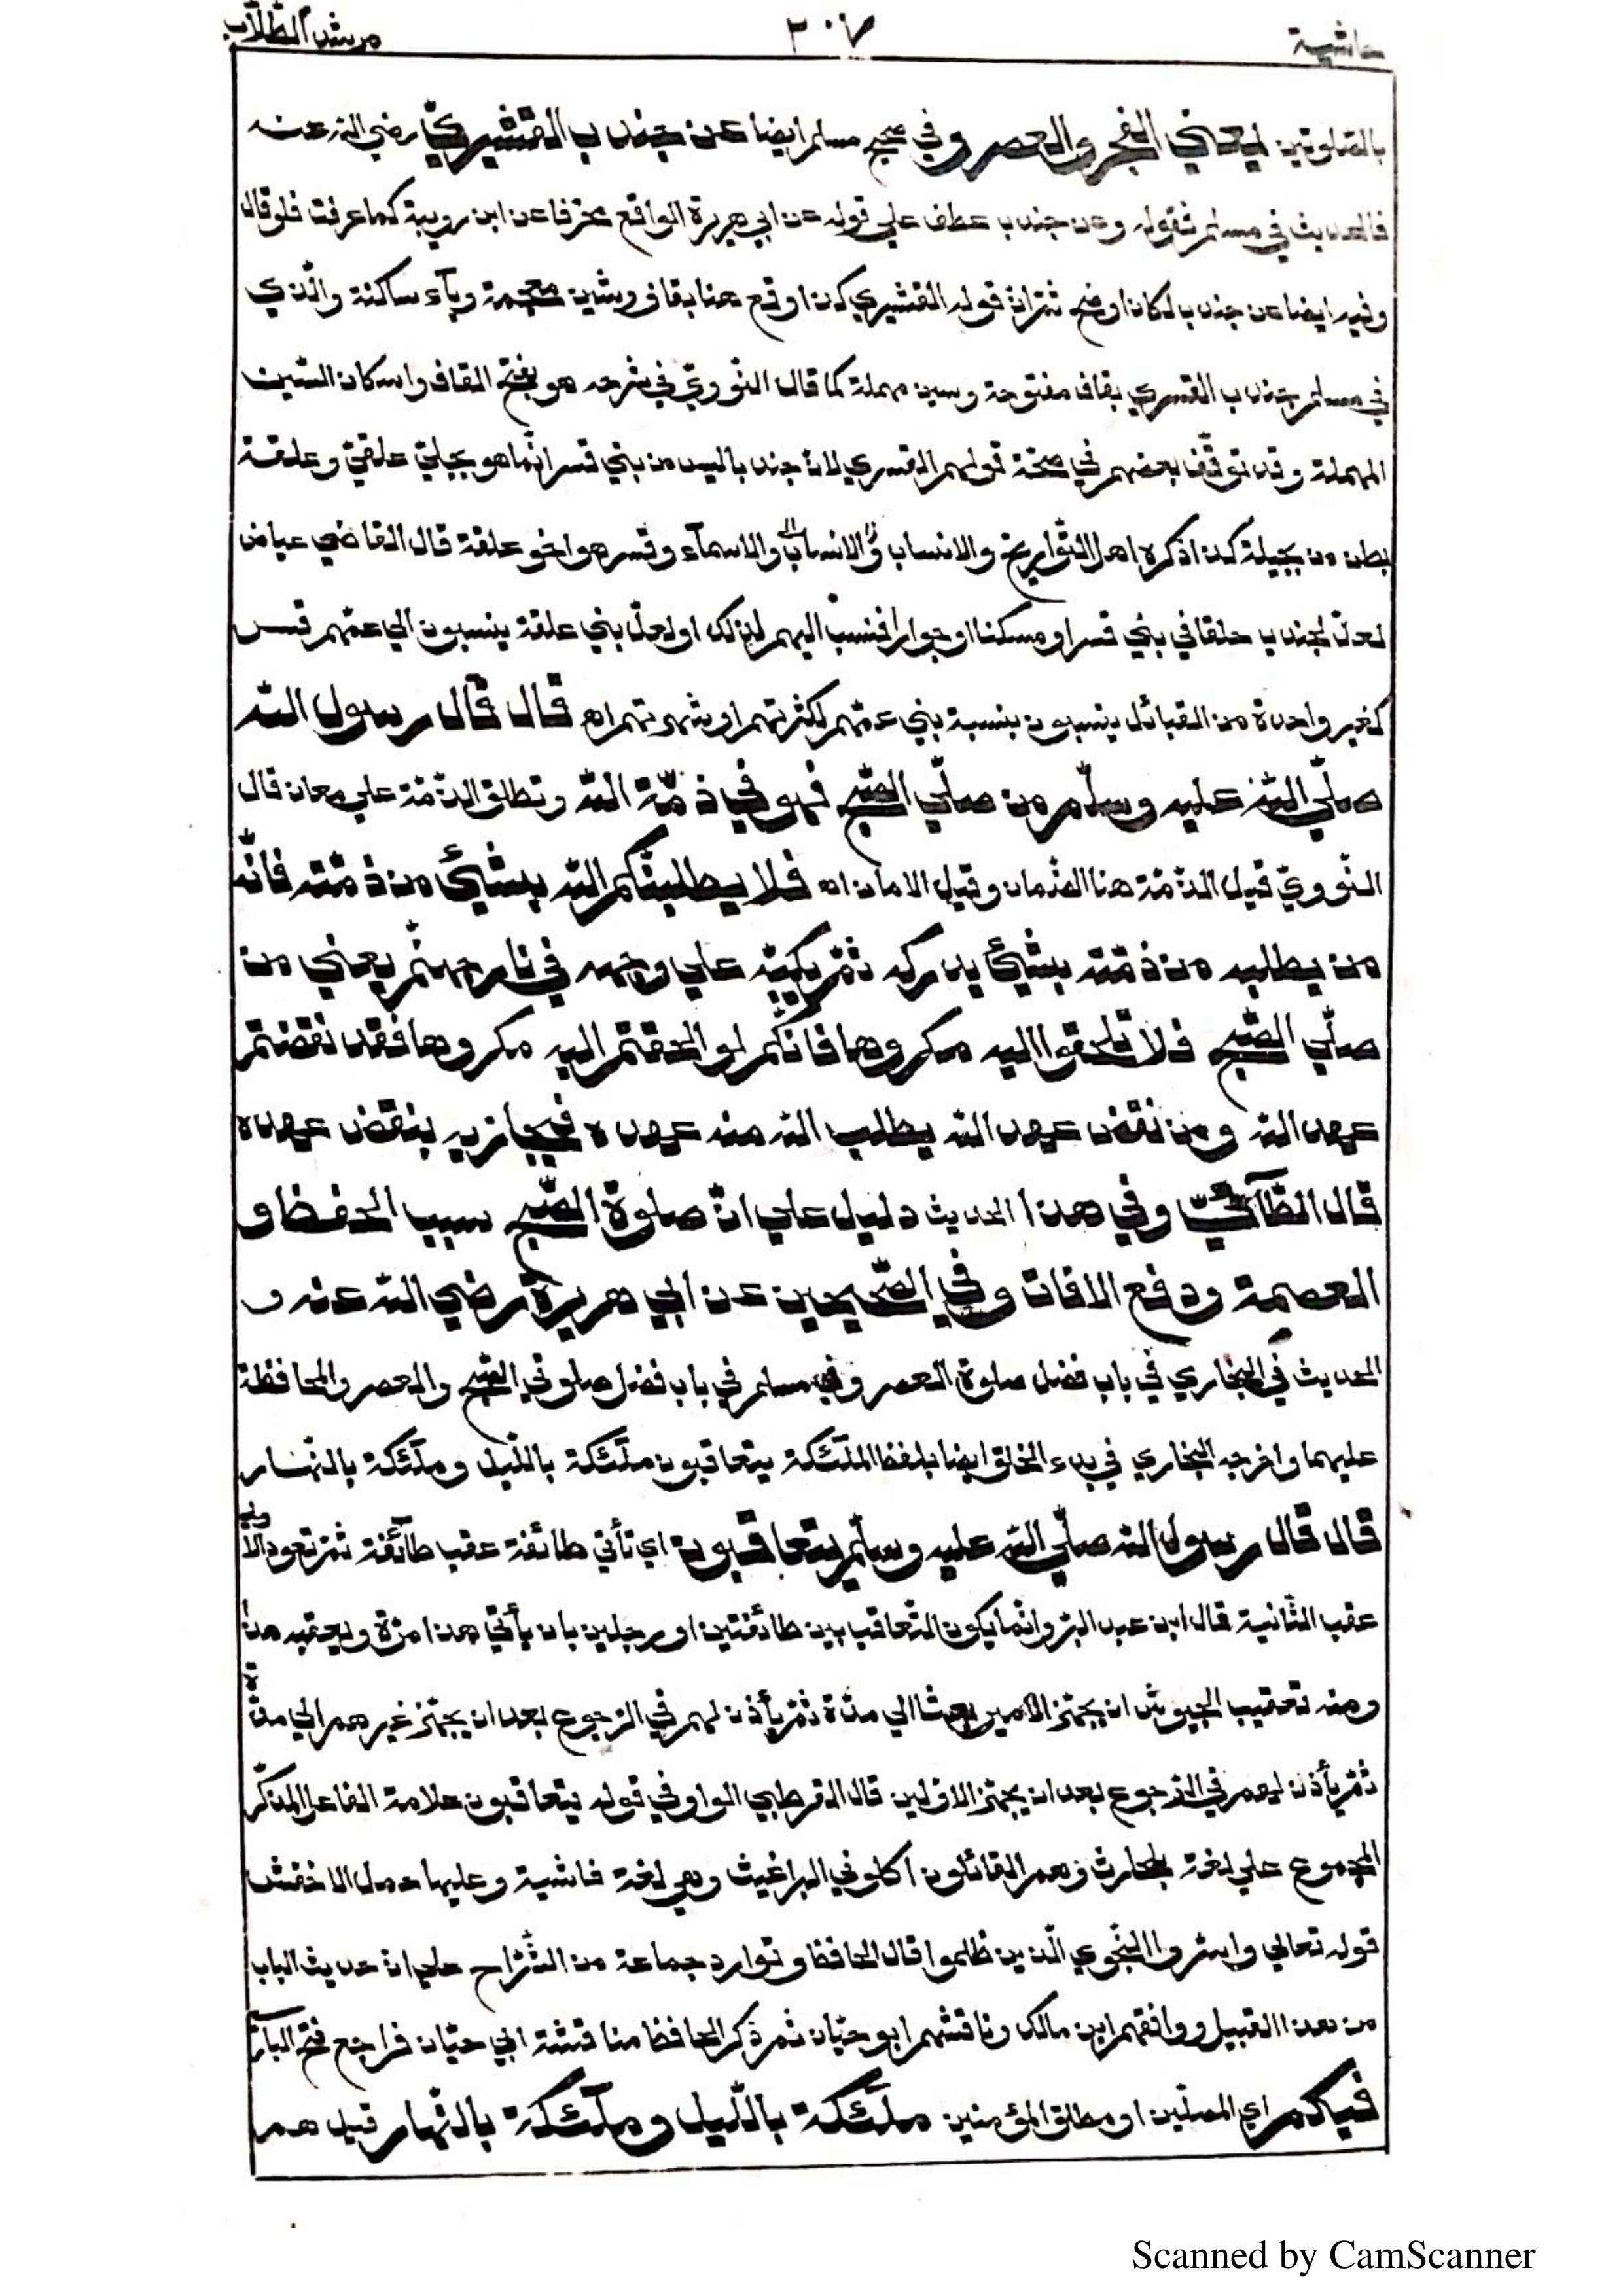 حاشية ٢٠٧ مرشد الطّلّاب
بالصّلوتين يعني الفجر والعصر وفي صحيح مسلم ايضا عن جندب القشيريّ رضي الله عنه
فالحديث في مسلم فقوله وعن جندب عطف علي قوله عن ابي هريرة الواقع محرّفا عن ابن رويبة كما عرفت فلو قال
وفيه ايضا عن جندب لكان اوضح ثمّ انّ قوله القشيري كذا وقع هنا بقاف وشين معجمة وياء ساكنة والّذي
في مسلم جندب القسري بقاف مفتوحة وسين مهملة كما قال النّوويّ في شرحه هو بفتح القاف واسكان السّين
المهملة وقد توقّف بعضهم في صحّة قولهم القسري لانّ جندبا ليس من بني قسر انّما هو بجليّ علقيّ وعلقة
بطن من بجيلة كذا ذكره اهل التّواريخ والانساب والانساب والاسمآء وقسر هو اخو علقة قال القاضي عياض
لعلّ لجندب حلفا في بني قسر او سكنا او جوارا فنسب اليهم لذلك او لعلّ بني علقة ينسبون الي عمّهم قسر
كغير واحدة من القبائل ينسبون بنسبة بني عمّهم لكثرتهم او شهرتهم اه قال قال رسول الله
صلّي الله عليه وسلّم من صلّي الصّبح فهو في ذمّة الله وتطلق الذّمّة علي معان قال
النّوويّ قيل الذّمّة هنا الضّمان وقيل الامان اه فلا يطلبنّكم الله بشئ من ذمّته فانّه
من يطلبه من ذمّته بشئ يدركه ثمّ يكبّه علي وجهه في نار جهنّم يعني من
صلّي الصّبح فلا تلحقوا اليه مكروها فانّكم لو الحقتم اليه مكروها فقد نقضتم
عهد الله ومن نقض عهد الله يطلب الله منه عهده فيجازيه بنقض عهده
قال الطّآئيّ وفي هذا الحديث دليل علي انّ صلوة الصّبح سبب الحفظ و
العصمة ودفع الافات وفي الصّحيحين عن ابي هريرة رضي الله عنه و
الحديث في البخاري في باب فضل صلوة العصر وفي مسلم في باب فضل صلوتي الصّبح والعصر والمحافظة
عليهما واخرجه البخاري في بدء الخلق ايضا بلفظ الملئكة يتعاقبون ملئكة باللّيل وملئكة بالنّهار
قال قال رسول الله صلّي الله عليه وسلّم يتعاقبون اي تأتي طائفة عقب طآئفة ثمّ تعود الاولي
عقب الثّانية قال ابن عبد البرّ وانّما يكون التّعاقب بين طائفتين او رجلين بان يأتي هذا مرّة ويعقبه هذا
ومنه تعقيب الجيوش ان يجهّز الامير بعثا الي مدّة ثمّ يأذن لهم في الرّجوع بعد ان يجهّز غيرهم الي مدّة
ثمّ يأذن لهم في الرّجوع بعد ان يجهّز الاوّلين قال القرطبي الواو في قوله يتعاقبون علامة الفاعل المذكّر
المجموع علي لغة بلحارث وهم القائلون اكلوني البراغيث وهي لغة فاشية وعليها حمل الاخفش
قوله تعالي واسرّوا النّجوي الّذين ظلموا قال الحافظ وتوارد جماعة من الشّرّاح علي انّ حديث الباب
من هذا القبيل ووافقهم ابن مالك وناقشهم ابو حيّان ثمّ ذكر الحافظ مناقشة ابي حيّان فراجع فتح الباري
فيكم اي المصلّين او مطلق المؤمنين ملئكة باللّيل وملئكة بالنّهار قيل هم
Scanned by CamScanner